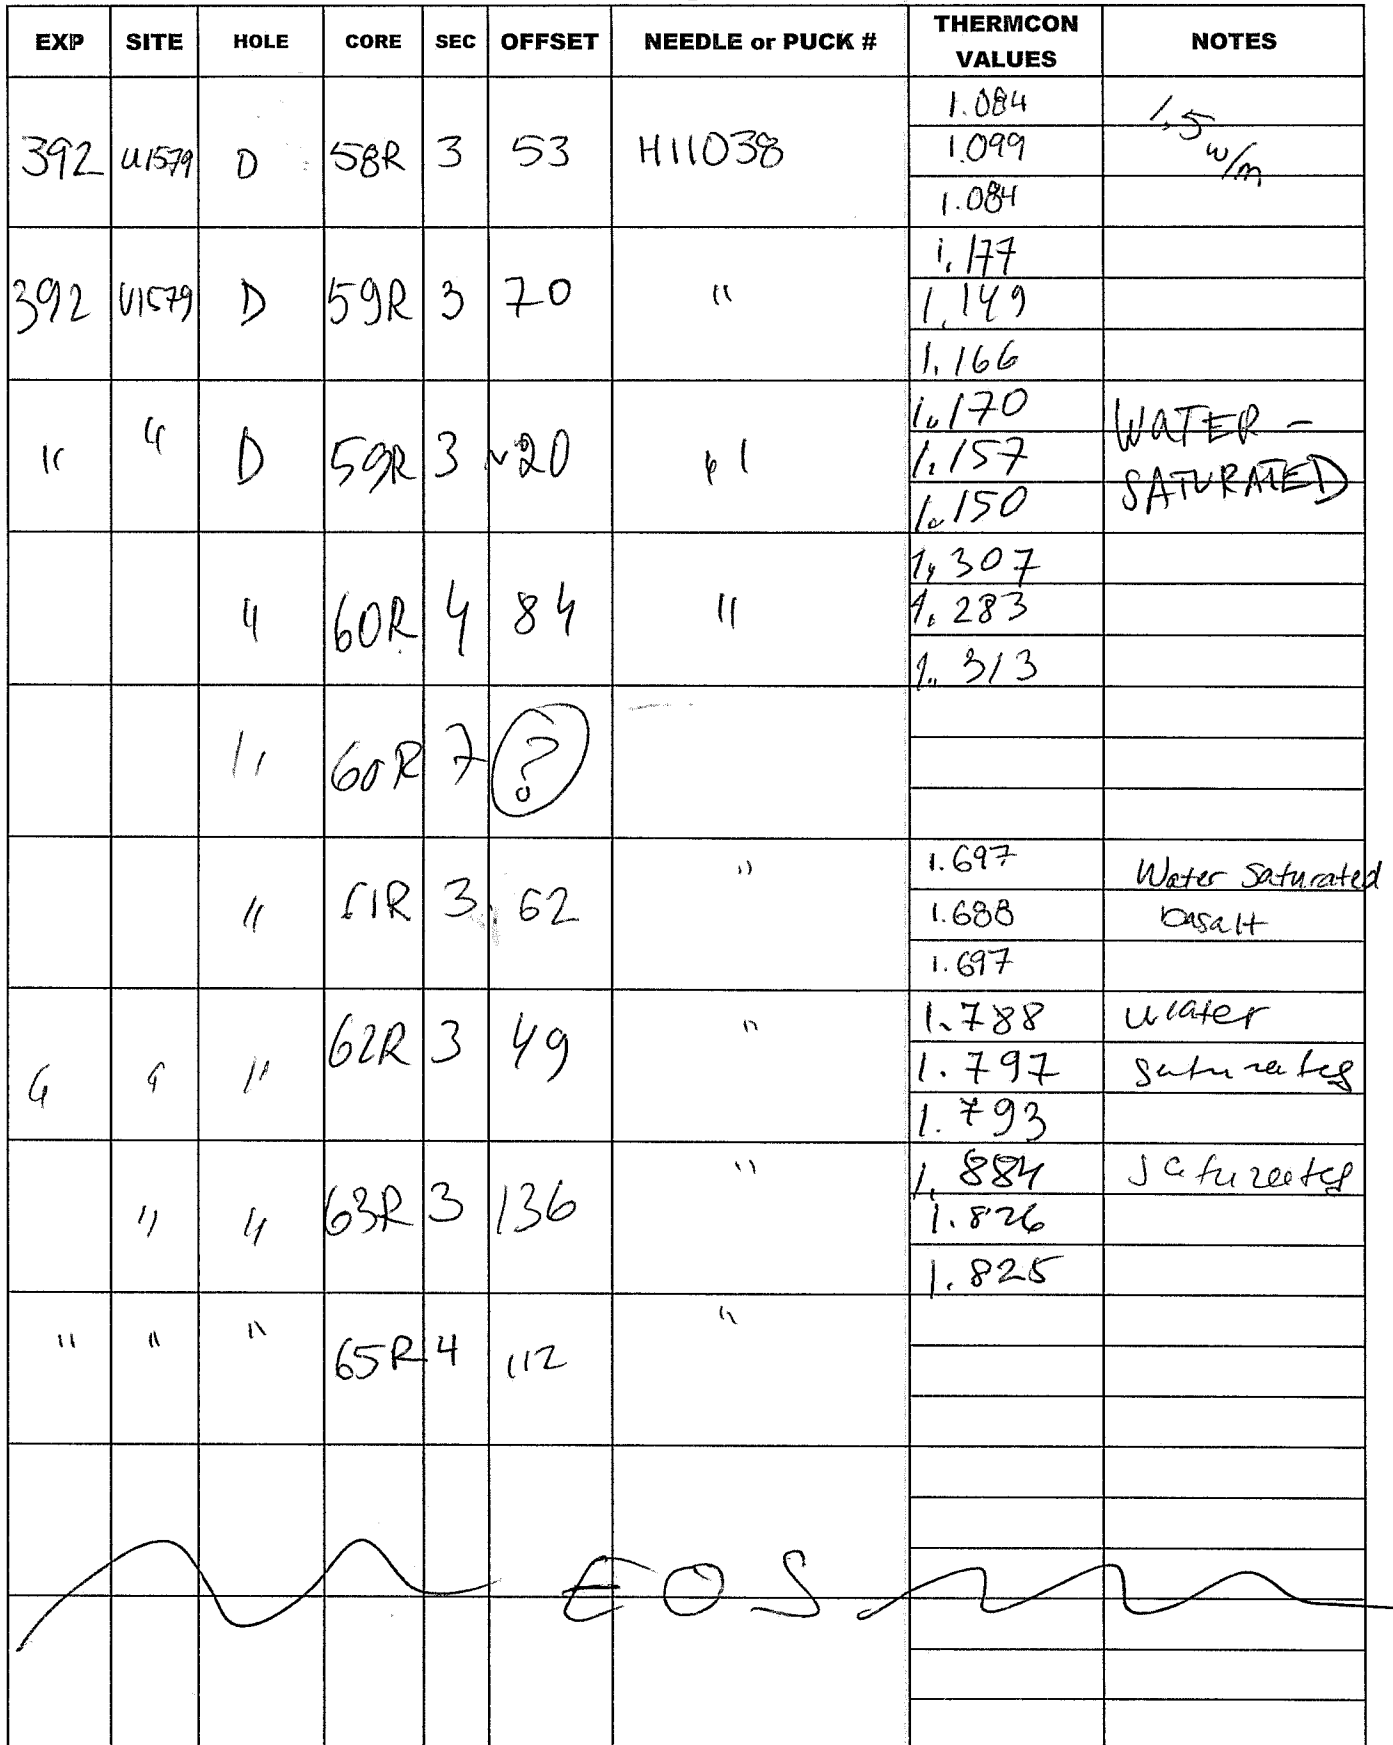 EXP SITE HOLE CORE SEC OFFSET NEEDLE or PUCK # THERMCON VALUES NOTES
392 U1579 D 58R 3 53 H11038 1.084 1.5 w/m
1.099
1.084
392 U1579 D 59R 3 70 " 1.177
1.149
1.166
" " D 59R 3 ~20 " 1.170 WATER -
1.157 SATURATED
1.150
" 60R 4 84 " 1.307
1.283
1.313
" 60R 7 ?
" 61R 3 62 " 1.697 Water Saturated
1.688 basalt
1.697
" " " 62R 3 49 " 1.788 water
1.797 saturated
1.793
" " 63R 3 136 " 1.884 saturated
1.826
1.825
" " " 65R 4 112 "
EOS